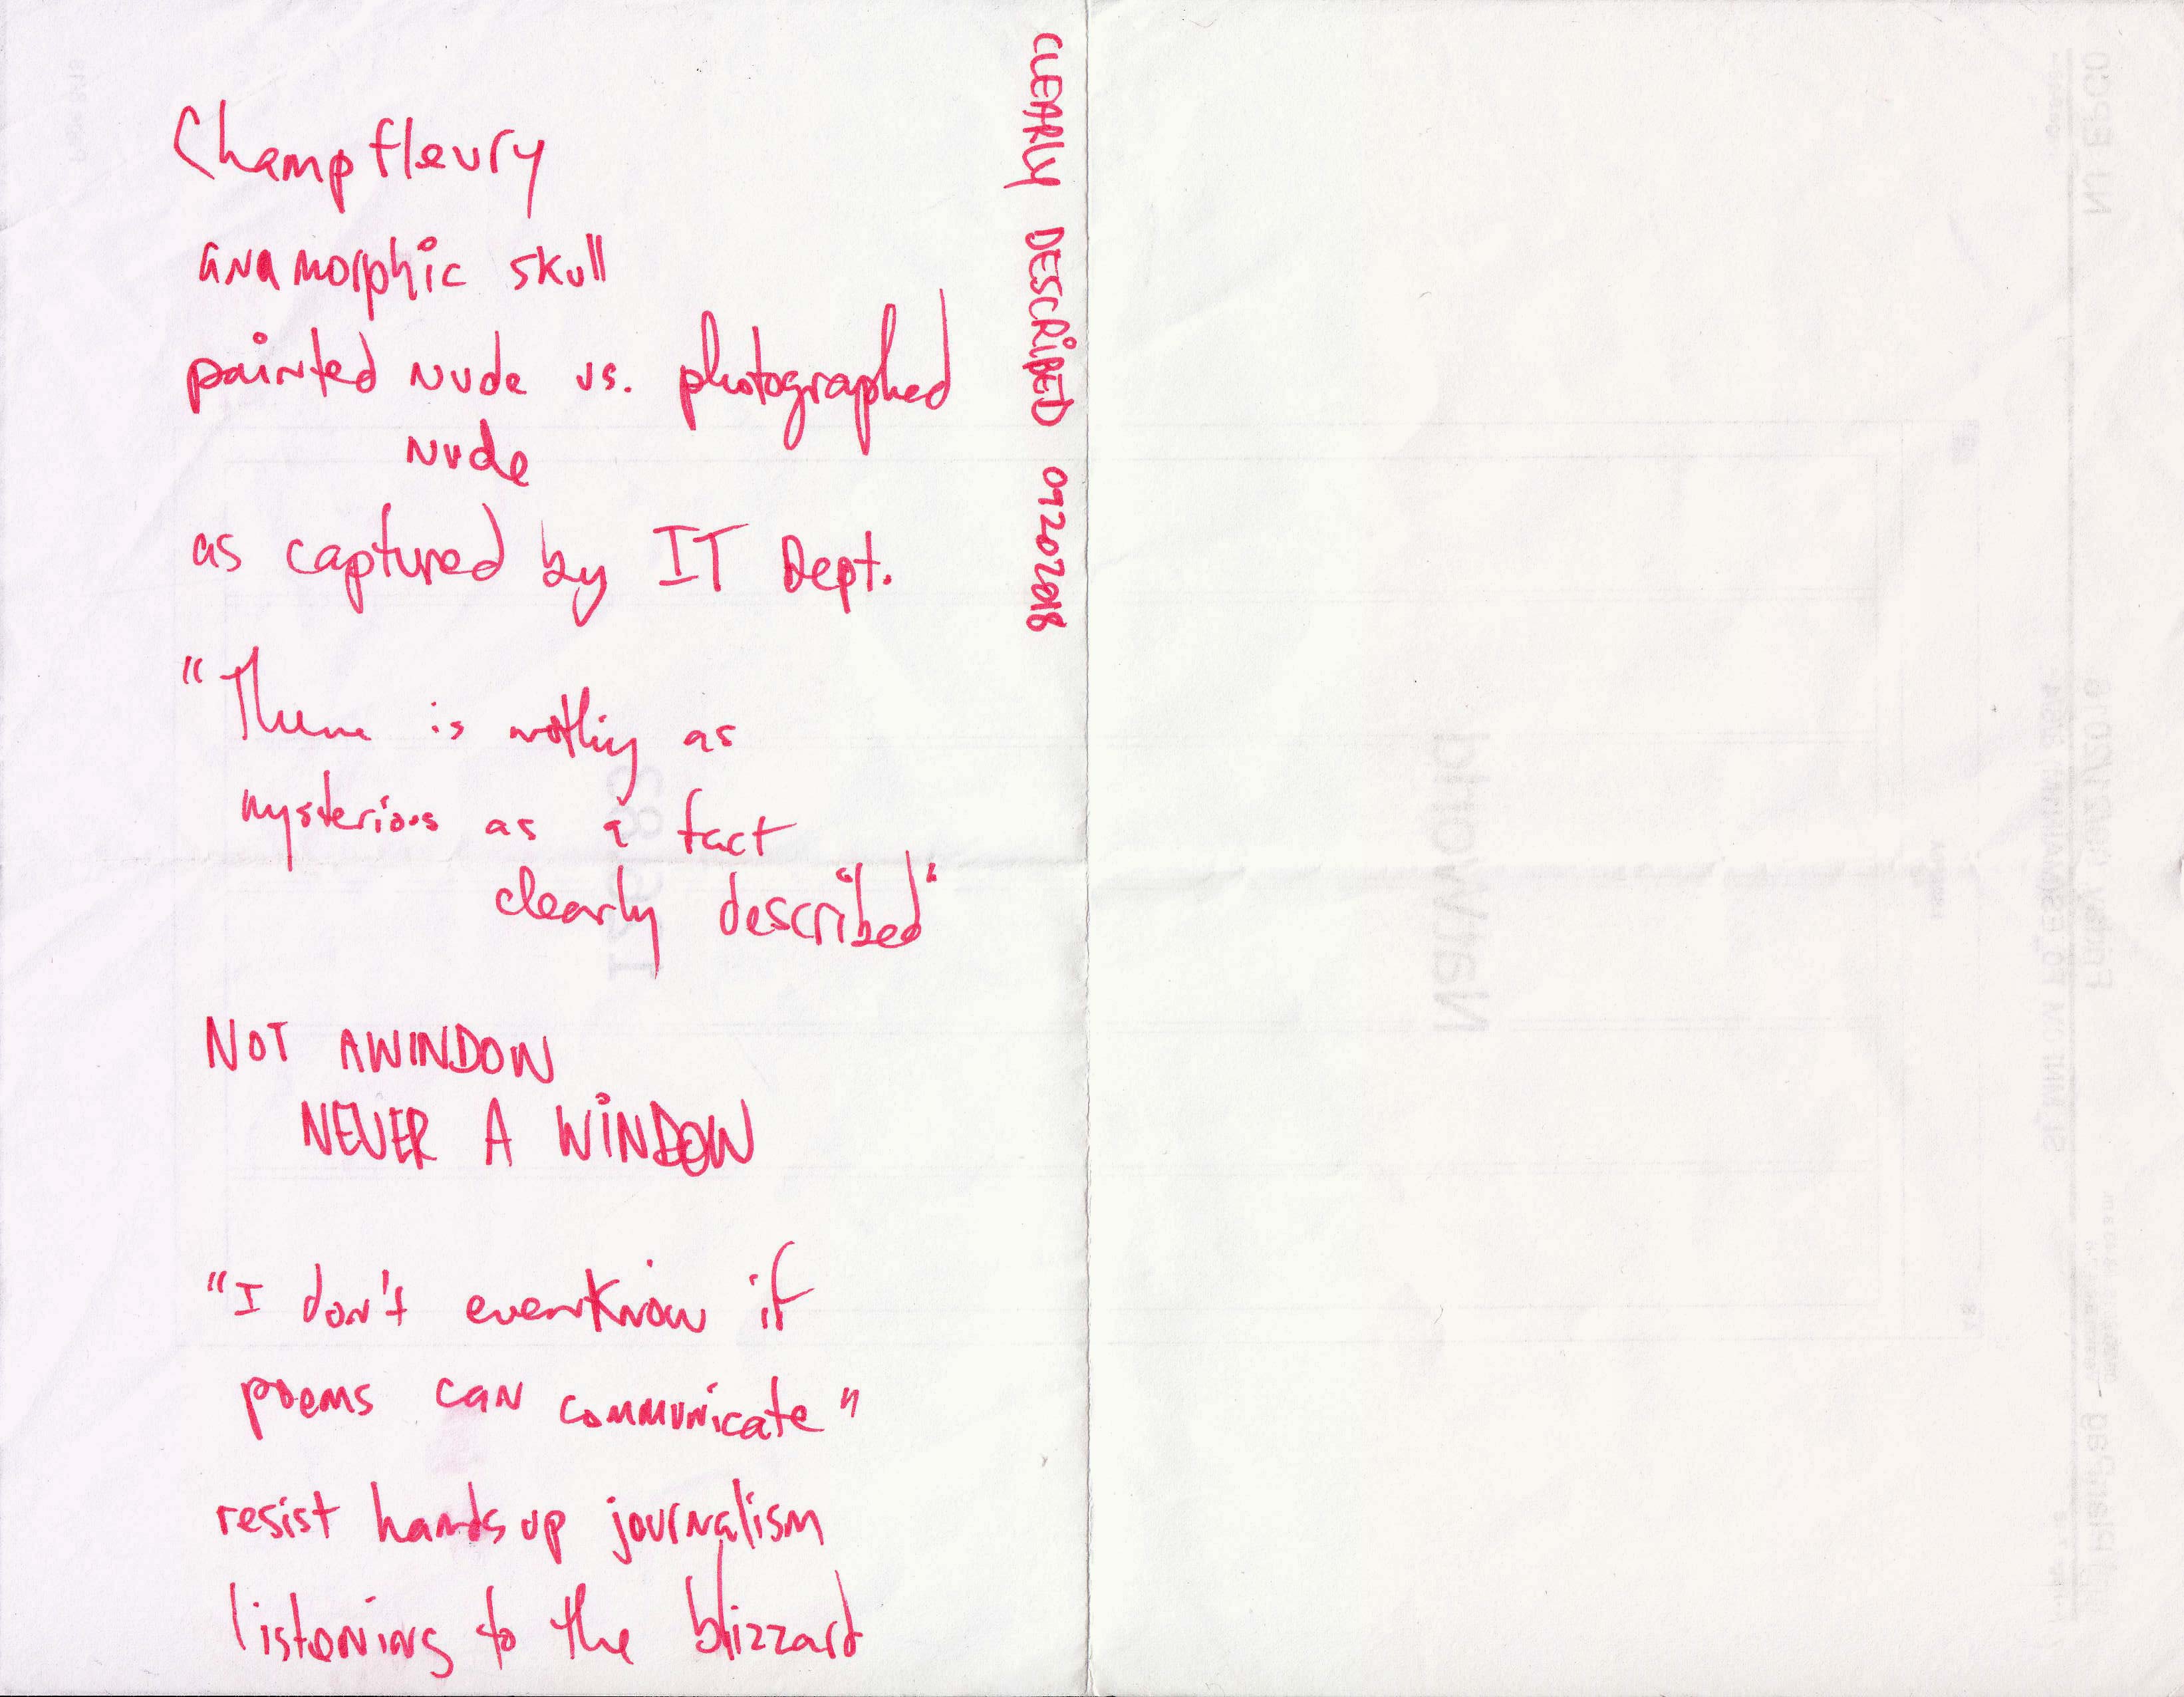 Champfleury
anamorphic skull
painted nude vs. photographed
nude
as captured by IT Dept.
"There is nothing as
mysterious as a fact
clearly described"
NOT A WINDOW
NEVER A WINDOW
"I don't even know if
poems can communicate"
resist hands up journalism
listening to the blizzard
CLEARLY DESCRIBED 09202018
Natworld